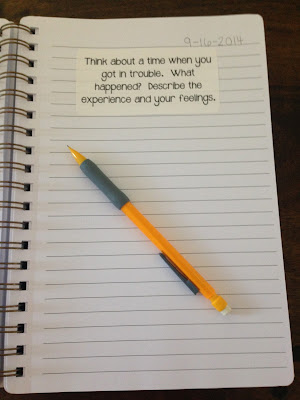 9-16-2014
Think about a time when you
got in trouble. What
happened? Describe the
experience and your feelings.